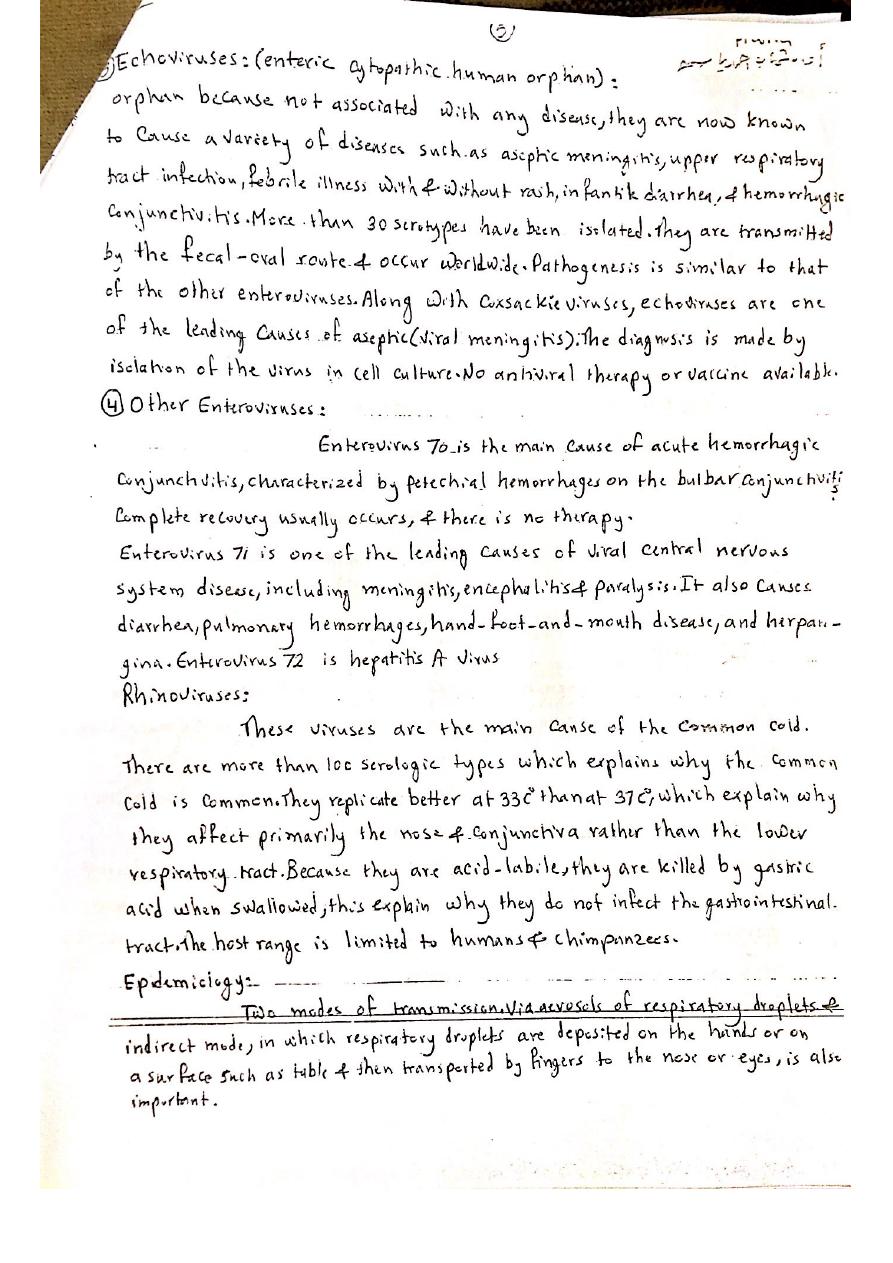 5
Echoviruses: (enteric cytopathic human orphan):
orphan because not associated with any disease, they are now known
to Cause a variety of diseases such as aseptic meningitis, upper respiratory
tract infection, febrile illness with & without rash, infantile diarrhea, & hemorrhagic
Conjunctivitis. More than 30 serotypes have been isolated. They are transmitted
by the fecal-oral route & occur worldwide. Pathogenesis is similar to that
of the other enteroviruses. Along with Coxsackie viruses, echoviruses are one
of the leading Causes of aseptic (viral meningitis). The diagnosis is made by
isolation of the virus in cell culture. No antiviral therapy or vaccine available.
4 Other Enteroviruses:
Enterovirus 70 is the main Cause of acute hemorrhagic
Conjunctivitis, characterized by petechial hemorrhages on the bulbar Conjunctivitis
Complete recovery usually occurs, & there is no therapy.
Enterovirus 71 is one of the leading Causes of viral Central nervous
system disease, including meningitis, encephalitis & paralysis. It also Causes
diarrhea, pulmonary hemorrhages, hand-foot-and-mouth disease, and herpan-
gina. Enterovirus 72 is hepatitis A virus
Rhinoviruses:
These viruses are the main Cause of the Common Cold.
There are more than 100 serologic types which explains why the Common
Cold is Common. They replicate better at 33C° than at 37C°, which explain why
they affect primarily the nose & Conjunctiva rather than the lower
respiratory tract. Because they are acid-labile, they are killed by gastric
acid when swallowed, this explain why they do not infect the gastrointestinal
tract. The host range is limited to humans & Chimpanzees.
Epdemiology:-
Two modes of transmission. Via aerosols of respiratory droplets &
indirect mode, in which respiratory droplets are deposited on the hands or on
a surface such as table & then transported by fingers to the nose or eyes, is also
important.